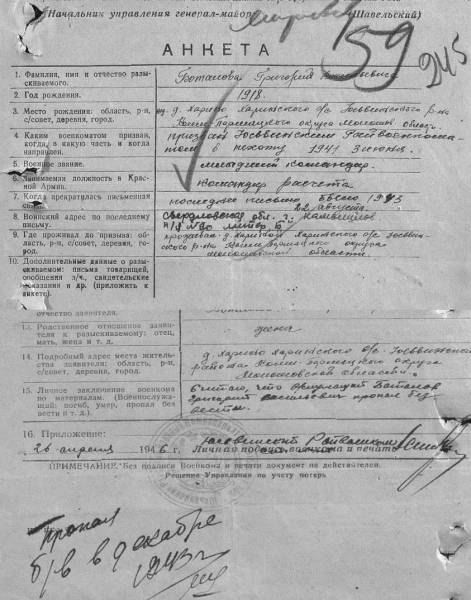 (Начальник управления генерал-майор (Шавельский)
59
245
АНКЕТА
1. Фамилия, имя и отчество разы-
скиваемого.
Ботанова Григория
2. Год рождения.
1918.
3. Место рождения: область, р-н,
с/совет, деревня, город.
д. Харино Харинского с/с Юсьвинского р-на
Коми-Пермяцкого округа Молотов. область
4. Каким военкоматом призван,
когда, в какую часть и когда
направлен.
призван Юсьвинским Райвоенкома-
том в пехоту 1941
5. Военное звание.
младший командир
6. Занимаемая должность в Крас-
ной Армии.
командир расчета
7. Когда прекратилась письменная
последнее письмо было 1943
22 августа
8. Воинский адрес по последнему
письму.
Свердловская обл. г. Камышлов
п/я №
9. Где проживал до призыва: об-
ласть, р-н, с/совет, деревня, го-
род.
проживал д. Харино Харинского с/с Юсьвин-
ского р-на Коми-Пермяцкого округа
Молотовской области.
10. Дополнительные данные о разы-
скиваемом: письма товарищей,
сообщения з/ч, свидетельские
показания и др. (приложить к
анкете).
отчество заявителя.
13. Родственное отношение заяви-
теля к разыскиваемому: отец,
мать, жена и т. д.
жена
14. Подробный адрес места житель-
ства заявителя: область, р-н,
с/совет, деревня, город.
д. Харино Харинского с/с Юсьвинского
района Коми-Пермяцкого округа
Молотовской области.
15. Личное заключение военкома
по материалам. (Военнослужа-
щий: погиб, умер, пропал без
вести и т. д.).
Считаю, что Ботанов
Григорий Васильевич пропал без
вести.
16. Приложение:
26 апреля 1946 г. Личная подпись военкома и печать
ПРИМЕЧАНИЕ: Без подписи Военкома и печати документ не действителен.
Решение Управления по учету потерь
Пропал
б/в в декабре
1943г